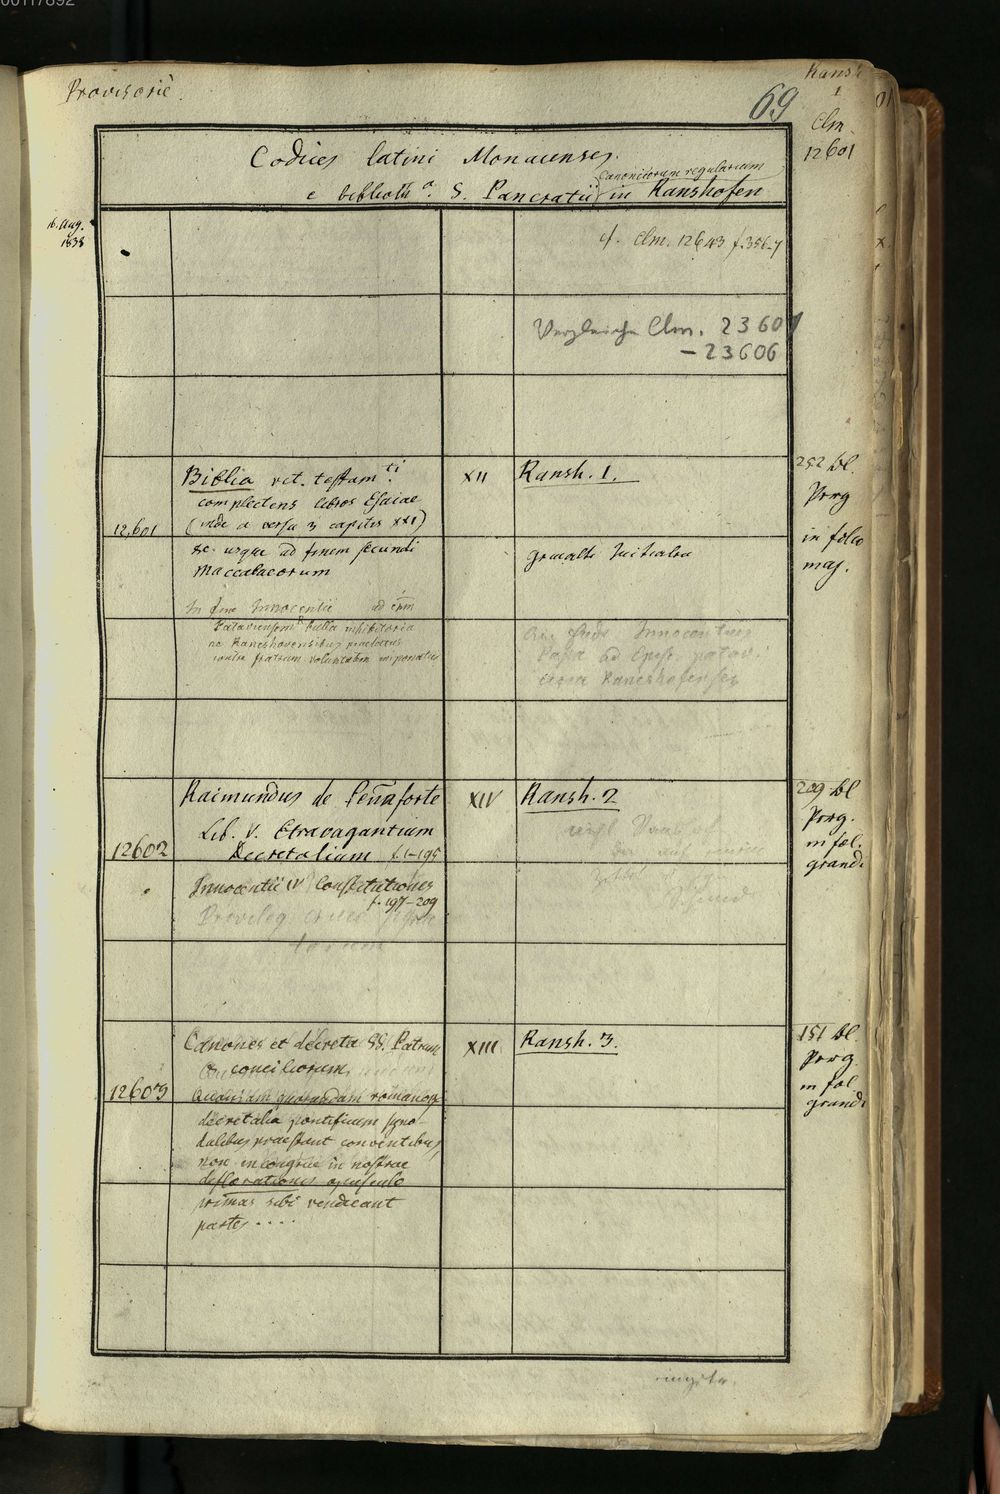 00117892
Provisorie.
69
Ransh
1
Clm.
12601
Codices latini Monacenses
Canonicorum regularium
e biblioth.a S. Pancratii in Ranshofen
16. Aug.
1838
cf. Clm. 12643 f. 356-7
Vergleiche Clm. 23601
– 23606
Biblia vet. testam.ti
complectens libros Esaiae
(inde a versu 3 capitis XXI)
12,601
&c. usque ad finem secundi
Maccabaeorum
In fine Innocentii ad
Pataviensem bulla inhibitoria
ne Ranshovensibus praelatus
contra fratrum voluntatem imponatur
XII
Ransh. 1.
gemalte Initialen
Am Ende Innocentius
Papa ad Episc. patav.
circa Ranshofenses
252 Bl.
Perg
in folio
maj.
Raimundus de Peñaforte
Lib. V. Etravagantium
Decretalium f. 1-195
12602
Innocentii IV Constitutiones
f. 197-209
Privileg.
XIV
Ransh. 2
209 Bl
Perg.
in fol.
grandi
Canones et decreta SS. Patrum
conciliorum
12603
Quoniam quorundam romanor.
decretalia pontificum syno-
dalibus praestant conventibus,
non incongrue in nostrae
deflorationis opusculo
primas sibi vendicant
partes ....
XIII
Ransh. 3.
151 Bl.
Perg
in fol
grandi